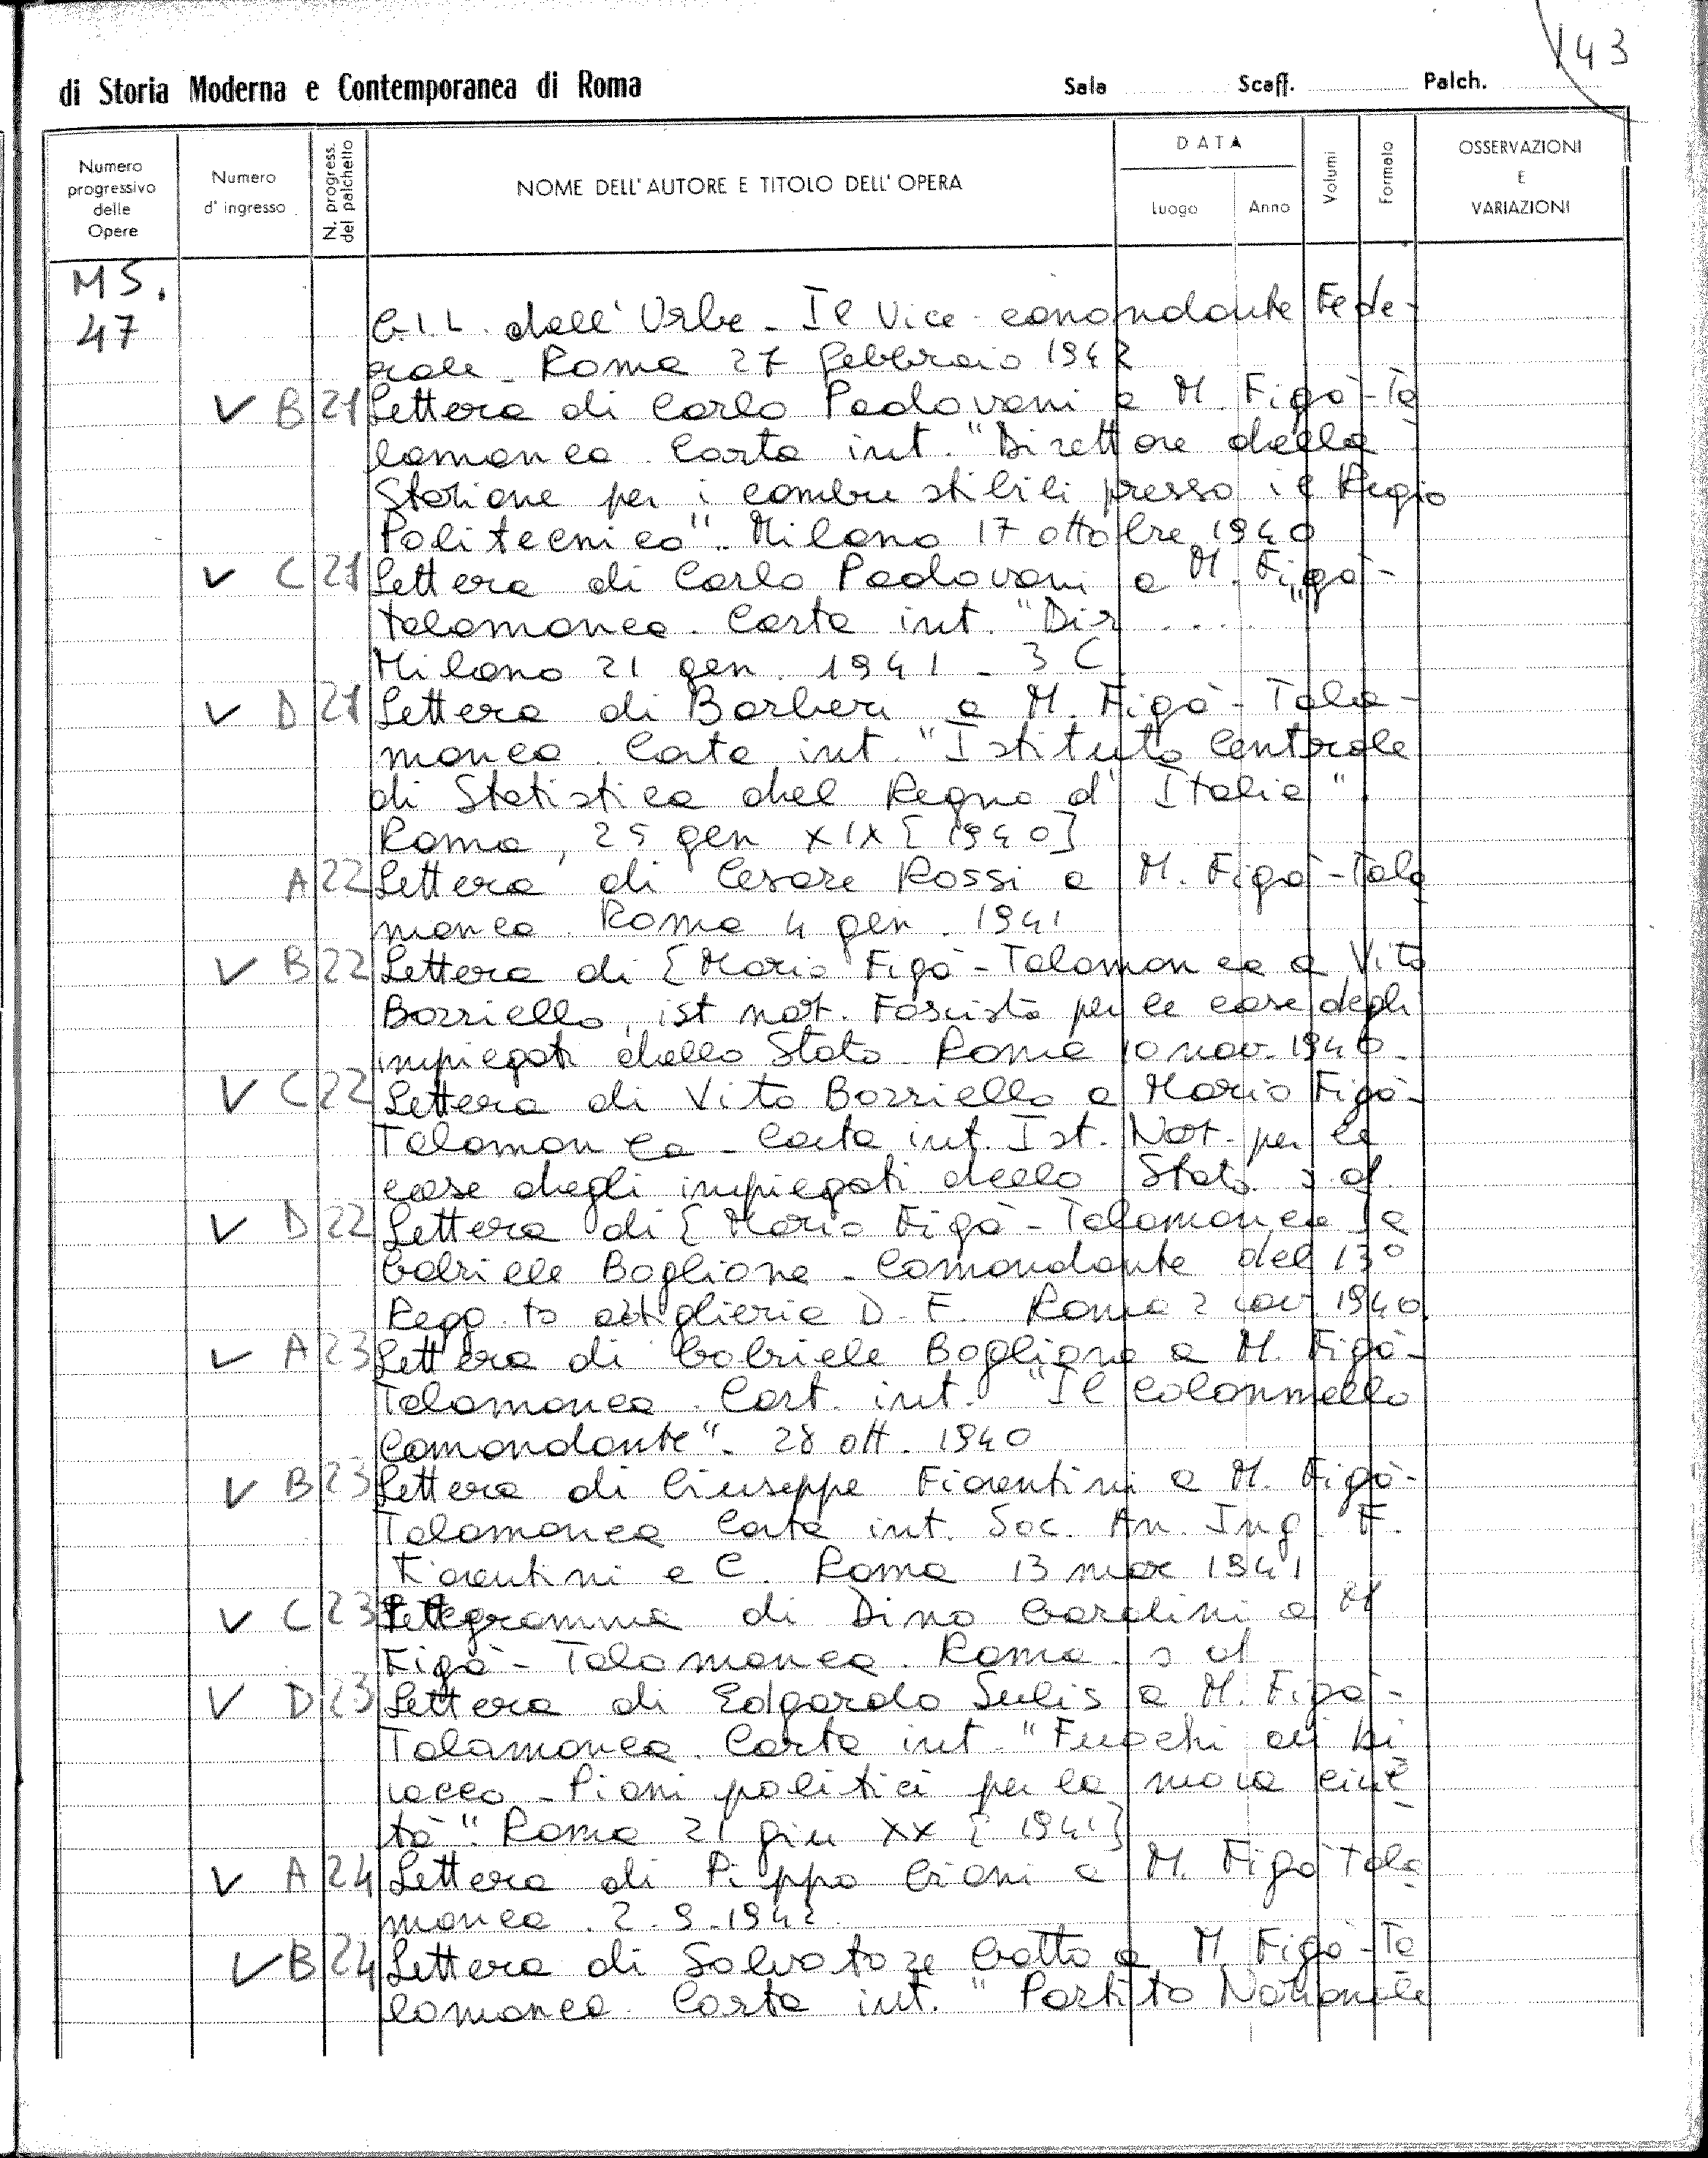 143
di Storia Moderna e Contemporanea di Roma Sala Scaff. Palch.
Numero progressivo delle Opere
Numero d'ingresso
N. progress. del palchetto
NOME DELL'AUTORE E TITOLO DELL'OPERA
DATA
Luogo Anno
Volumi
Formato
OSSERVAZIONI E VARIAZIONI
MS. 47
G.I.L. dell'Urbe - Il Vice comandante Fede-
rale - Roma 27 febbraio 1942
V B 21 Lettera di Carlo Padovani a M. Figà-Ta
lamanca. Carta int. "Direttore della
Stazione per i combustibili presso il Regio
Politecnico". Milano 17 ottobre 1940
V C 21 Lettera di Carlo Padovani a M. Figà-
Talamanca. Carta int. "Dir ...."
Milano 21 gen. 1941 - 3 C
V D 21 Lettera di Barberi a M. Figà-Tala-
manca. Carta int. "Istituto Centrale
di Statistica del Regno d'Italia"
Roma, 25 gen XIX [1940]
A 22 Lettera di Cesare Rossi a M. Figà-Tala
manca. Roma 4 gen. 1941
V B 22 Lettera di [Mario Figà-Talamanca a Vito
Borriello, ist nat. Fascista per le case degli
impiegati dello Stato - Roma 10 nov. 1940 -
V C 22 Lettera di Vito Borriello a Mario Figà-
Talamanca - Carta int. Ist. Nat. per le
case degli impiegati dello Stato s.d.
V D 22 Lettera di [Mario Figà-Talamanca] a
Gabriele Boglione - Comandante del 13°
Regg.to artiglieria D.F. Roma 2 nov. 1940
V A 23 Lettera di Gabriele Boglione a M. Figà-
Talamanca. Cart. int. "Il Colonnello
Comandante". 28 ott. 1940
V B 23 Lettera di Giuseppe Fiorentini a M. Figà-
Talamanca Carta int. Soc. An. Ing. F.
Fiorentini e C. Roma 13 mar 1941
V C 23 Telegramma di Dino Gardini a M
Figà-Talamanca. Roma. s d
V D 23 Lettera di Edgardo Sulis a M. Figà-
Talamanca. Carta int. "Fuochi di bi
vacco - Piani politici per la nuova civil
tà". Roma 21 giu XX [1941]
V A 24 Lettera di Pippo Cioni a M. Figà Tala
manca. 2.9.1942
V B 24 Lettera di Salvatore Gatto a M. Figà-Ta
lamanca. Carta int. "Partito Nazionale